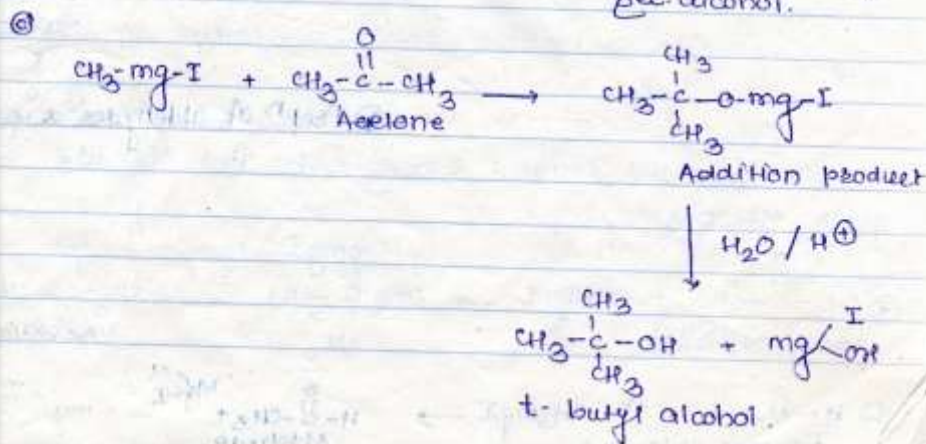 alcohol.
©
O
||
CH3-mg-I + CH3-C-CH3 ⟶ CH3-C-O-mg-I
CH3
CH3
Acetone
Addition product
H2O / H⊕
CH3
CH3-C-OH + mg<I
OH
CH3
t-butyl alcohol.